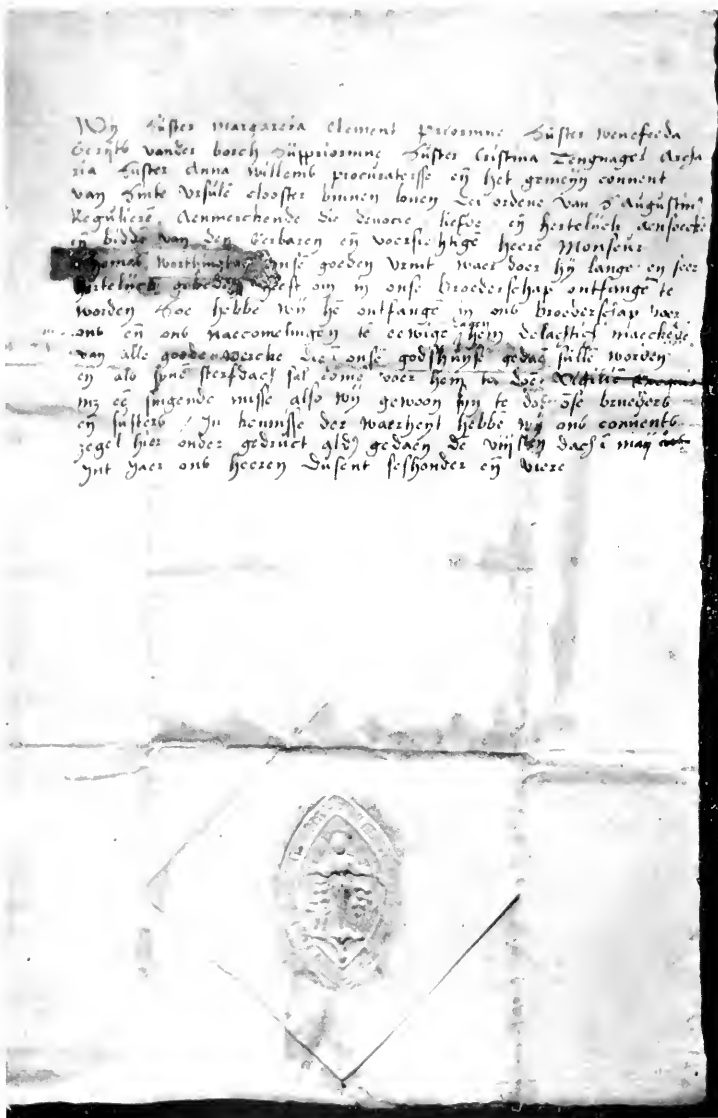 Wij Suster margareta clement priorinne Suster wenefreda
Gerijts vander borch Suppriorinne Suster Cristina Tengnagel Archa
ria Suster Anna willems procuratersse eñ het gemeijn convent
van Sinte Ursulē clooster binnen loven der ordene van S Augustin9
Regulierē Aenmerckende die devocie liefde eñ hertelijck aensoecke
eñ biddē van den Eerbaren eñ voersichtigē heere Monseur
Thomas worthington onsē goeden vrint waer doer hij lange en seer
hertelijck gebeden heeft om in onse broederschap ontfangē te
worden Soe hebbē wij hē ontfangē in ons broederscap voer
ons eñ ons naecomelingen te ewigē dagen hem delachtich maeckēde
van alle goede wercke die ī onse godshuijse gedaē sullē worden
eñ als sijnē sterfdach sal comē voer hem te doen Vigiliē
mz eē singende misse also wij gewoon sijn te doē ōse brueders
eñ susters / In kennisse der waerheyt hebbē wij ons convents
zegel hier onder gedruct aldꝰ gedaen dē dach ī maij
Int Jaer ons heeren dusent seshonder eñ viere